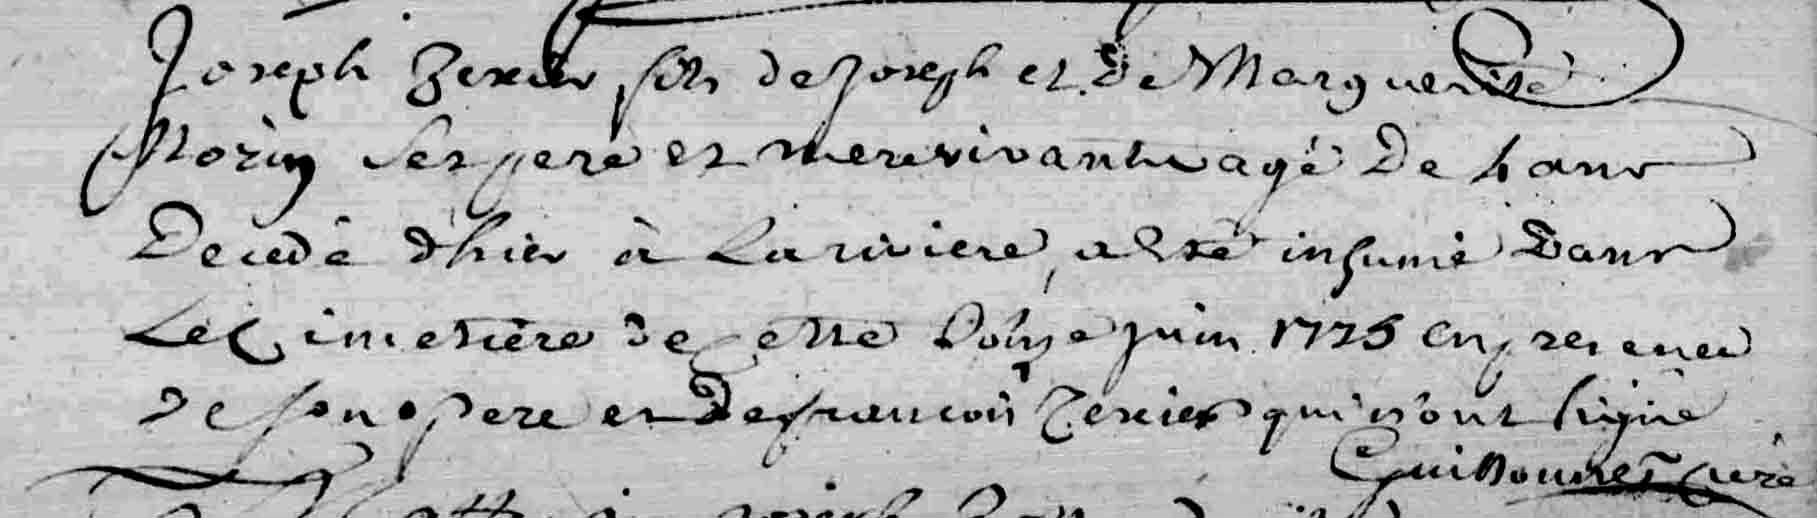 Joseph Texier fils de Joseph et de Marguerite
Morin ses pere et mere vivants agé de 4 ans
Decedé d'hier à La riviere, a esté inhumé dans
Le Cimetiere de cette juin 1725 en presence
de son pere et de francois Texier qui n'ont signé
curé